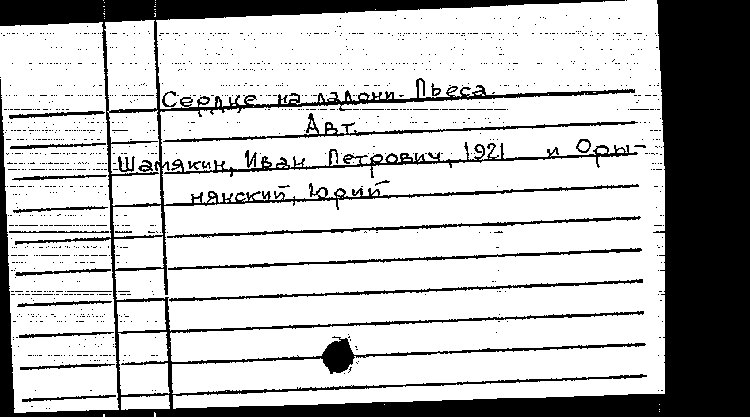 Сердце на ладони. Пьеса.
Авт.
Шамякин, Иван Петрович, 1921 и Оры-
нянский, Юрий